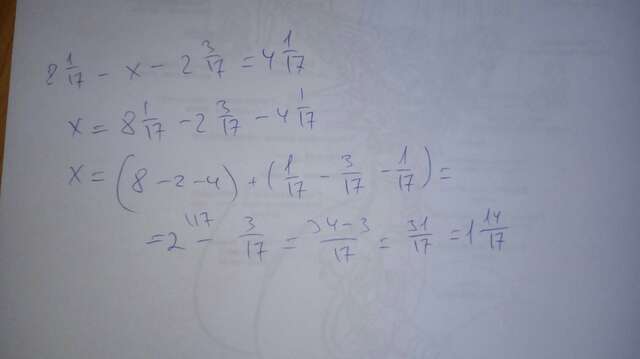 8 1/17 - x - 2 3/17 = 4 1/17
x = 8 1/17 - 2 3/17 - 4 1/17
x = (8 - 2 - 4) + (1/17 - 3/17 - 1/17) =
= 2 - 3/17 = 34-3/17 = 31/17 = 1 14/17